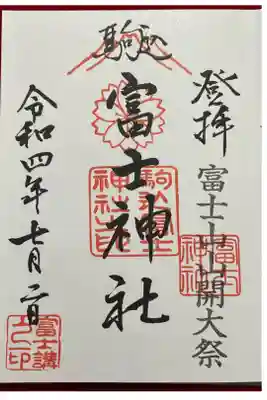 登拝
富士山山開大祭
富士神社
駒込
富士神社
駒込富士神社之印
令和四年七月二日
富士講